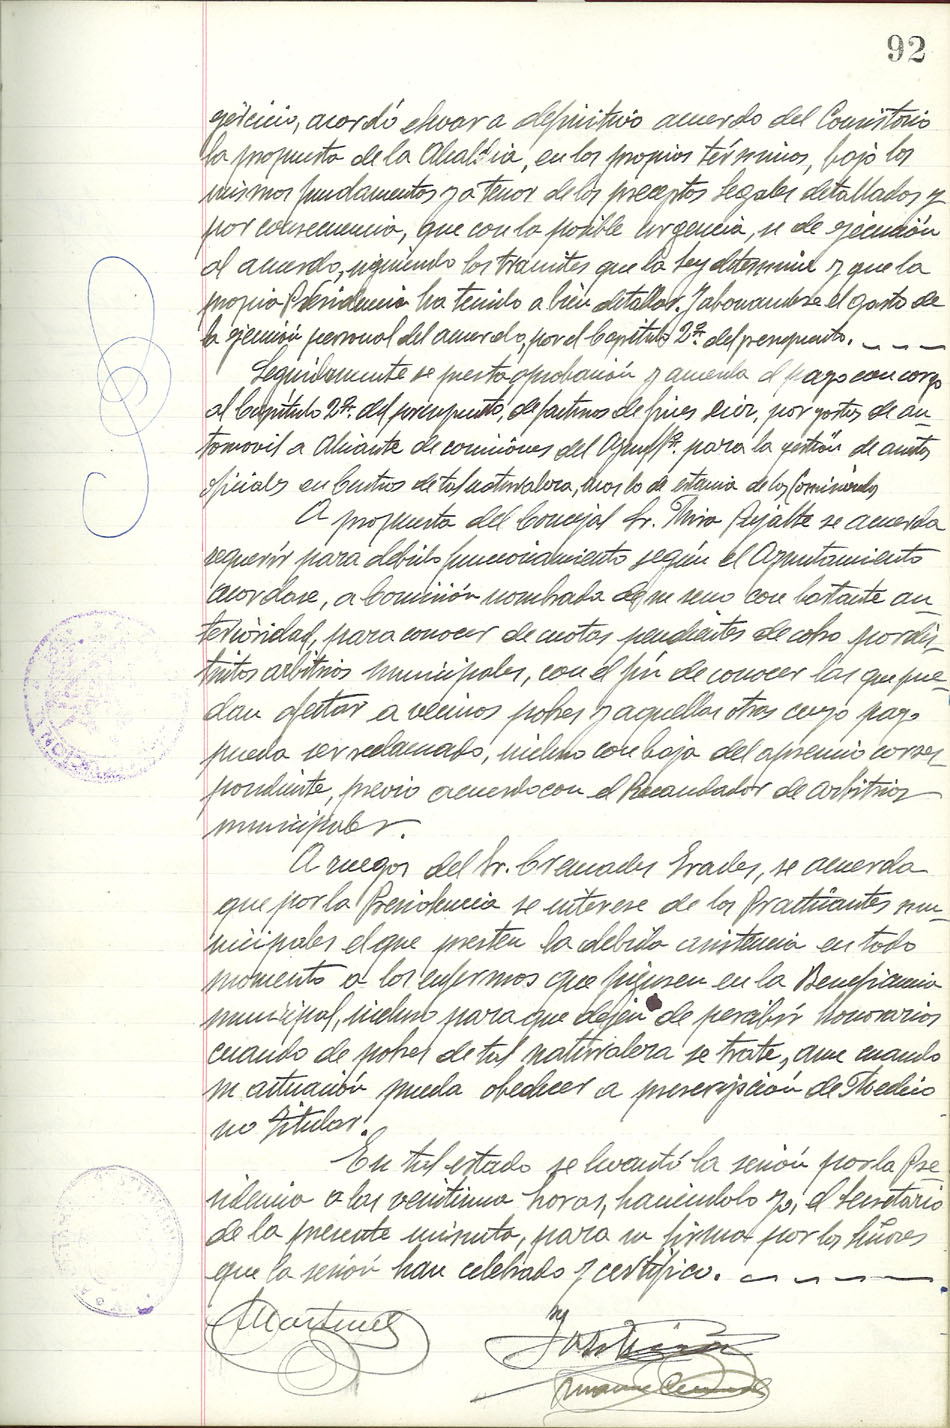 92
ejercicio, acordó elevar a definitivo acuerdo del Consistorio
la propuesta de la Alcaldia, en los propios términos, bajo los
mismos fundamentos y a tenor de los preceptos legales detallados y
por consecuencia, que con la posible urgencia, se de ejecución
al acuerdo, siguiendo los trámites que la Ley determine y que la
propia Presidencia ha tenido a bien detallar. Y abonandose el gasto de
la gestión personal del acuerdo, por el Capítulo 2º. del presupuesto.
Seguidamente se presta aprobación y acuerda el pago con cargo
al Capítulo 2º. del presupuesto, de facturas de por gastos de au-
tomovil a Alicante de comisiónes del Ayuntº. para la gestión de asuntos
oficiales en Centros de tal naturaleza, mas la de estancia de los Comisionados
A propuesta del Concejal Sr. Mira se acuerda
requerir para debido funcionamiento según el Ayuntamiento
acordase, a Comisión nombrada de su seno con bastante an-
terioridad, para conocer de cuotas pendientes de cobro por dis-
tintos arbitrios municipales, con el fin de conocer las que pue-
dan afectar a vecinos pobres y aquellas otras cuyo pago
pueda ser reclamado, incluso con baja del apremio corres-
pondiente, previo acuerdo con el Recaudador de arbitrios
municipales.
A ruegos del Sr. Cremades Erades, se acuerda
que por la Presidencia se interese de los Practicantes mu-
nicipales el que presten la debida asistencia en todo
momento a los enfermos que figuren en la Beneficencia
municipal, incluso para que dejen de percibir honorarios
cuando de pobres de tal naturaleza se trate, aun cuando
su actuación pueda obedecer a prescripción de Medico
no titular.
En tal estado se levantó la sesión por la Pre-
sidencia a las veintiuna horas, haciéndolo yo, el Secretario
de la presente minuta, para su firma por los Señores
que la sesión han celebrado y certifico.
Martinez